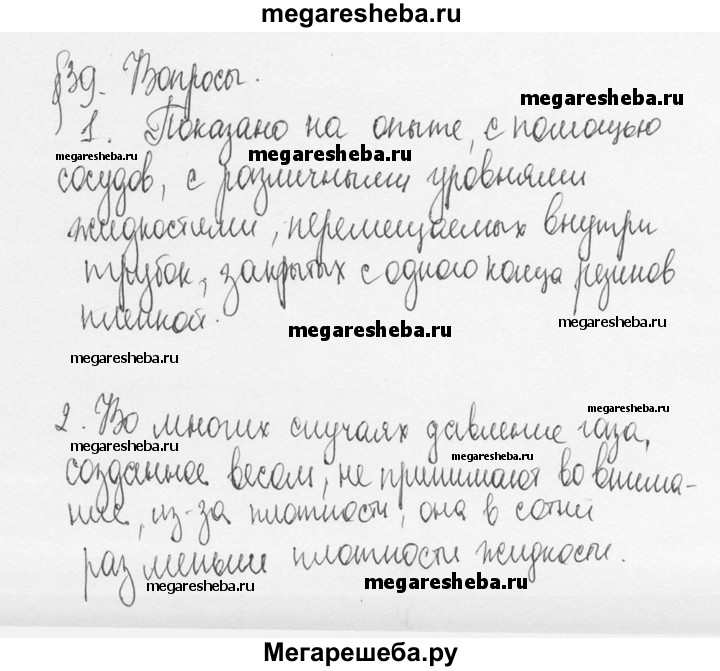 megaresheba.ru
§39. Вопросы.
megaresheba.ru
1. Показано на опыте, с помощью
megaresheba.ru
megaresheba.ru
сосудов, с различными уровнями
жидкостями, перемещаемых внутри
трубок, закрытых с одного конца резинов
пленкой.
megaresheba.ru
megaresheba.ru
megaresheba.ru
2. Во многих случаях давление газа,
megaresheba.ru
megaresheba.ru
megaresheba.ru
созданное весом, не принимают во внима-
ние, из-за плотности, она в сотни
раз меньше плотности жидкости.
megaresheba.ru
megaresheba.ru
Мегарешеба.ру